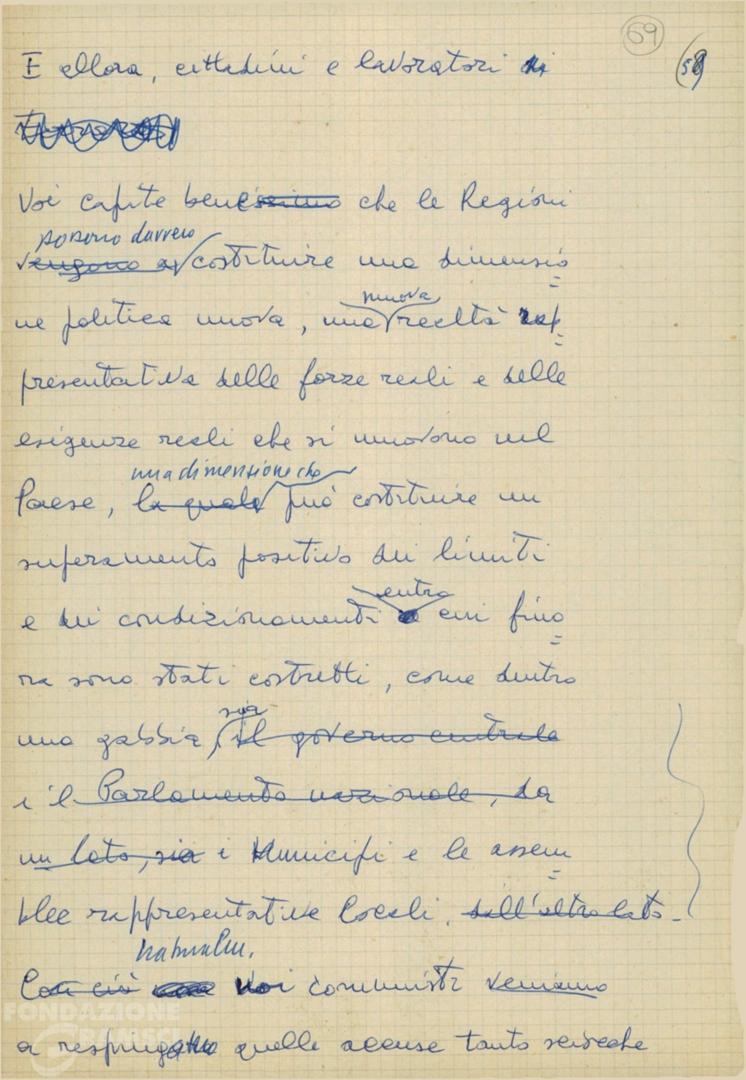 59
58
E allora, cittadini e lavoratori di
Voi capite benissimo che le Regioni
possono davvero
vengono a costituire una dimensio
ne politica nuova, una nuova realtà rap
presentativa delle forze reali e delle
esigenze reali che si muovono nel
una dimensione che
Paese, la quale può costituire un
superamento positivo dei limiti
entro
e dei condizionamenti cui fino
ra sono stati costretti, come dentro
sia
una gabbia, il governo centrale
e il Parlamento nazionale, da
un lato, sia i Municipi e le assem
blee rappresentative locali, dall'altro lato.
Con ciò noi comunisti veniamo
FONDAZIONE
GRAMSCI
a respingere quelle accuse tanto